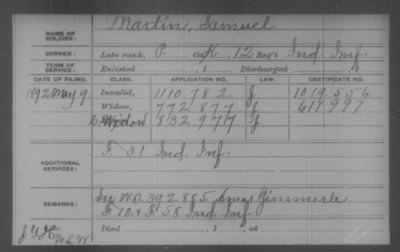 NAME OF SOLDIER: Martin, Samuel
SERVICE: Late rank, P. Co. K, 12 Reg't Ind Inf.
TERM OF SERVICE: Enlisted , 1 Discharged , 1
DATE OF FILING. CLASS. APPLICATION NO. LAW. CERTIFICATE NO.
1892 May 9 Invalid, 1110 782 J 1019 556
Widow, 772 877 J 617 997
Widow 832 977 J
ADDITIONAL SERVICES: F 31 Ind. Inf.
REMARKS: See WO. 392 885 Amos Zimmerle
F 70. & F 58 Ind. Inf.
Died , 1 , at